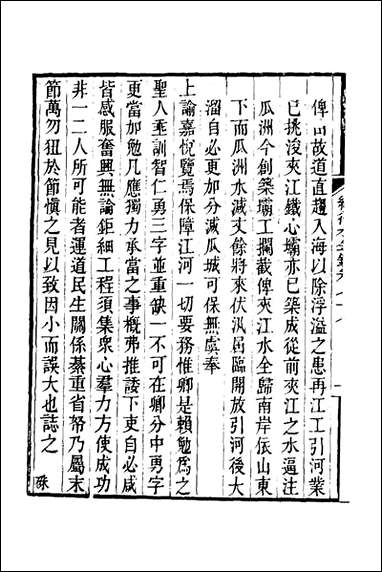 俾由故道直趨入海以除浮溢之患再江工引河業
已挑浚夾江鐵心壩亦已築成從前夾江之水逼注
瓜洲今創築壩工攔截俾夾江水全歸南岸依山東
下而瓜洲水減丈餘將來伏汛屆臨開放引河後大
溜自必更加分減瓜城可保無虞奉
上諭嘉悅覽焉保障江河一切要務惟卿是賴勉為之
聖人垂訓智仁勇三字並重缺一不可在卿分中勇字
更當加勉凡應獨力承當之事概弗推諉下吏自必咸
皆感服奮興無論鉅細工程須集衆心羣力方使成功
非一二人所可能者運道民生關係綦重省帑乃屬末
節萬勿狃於節慎之見以致因小而誤大也誌之
硃